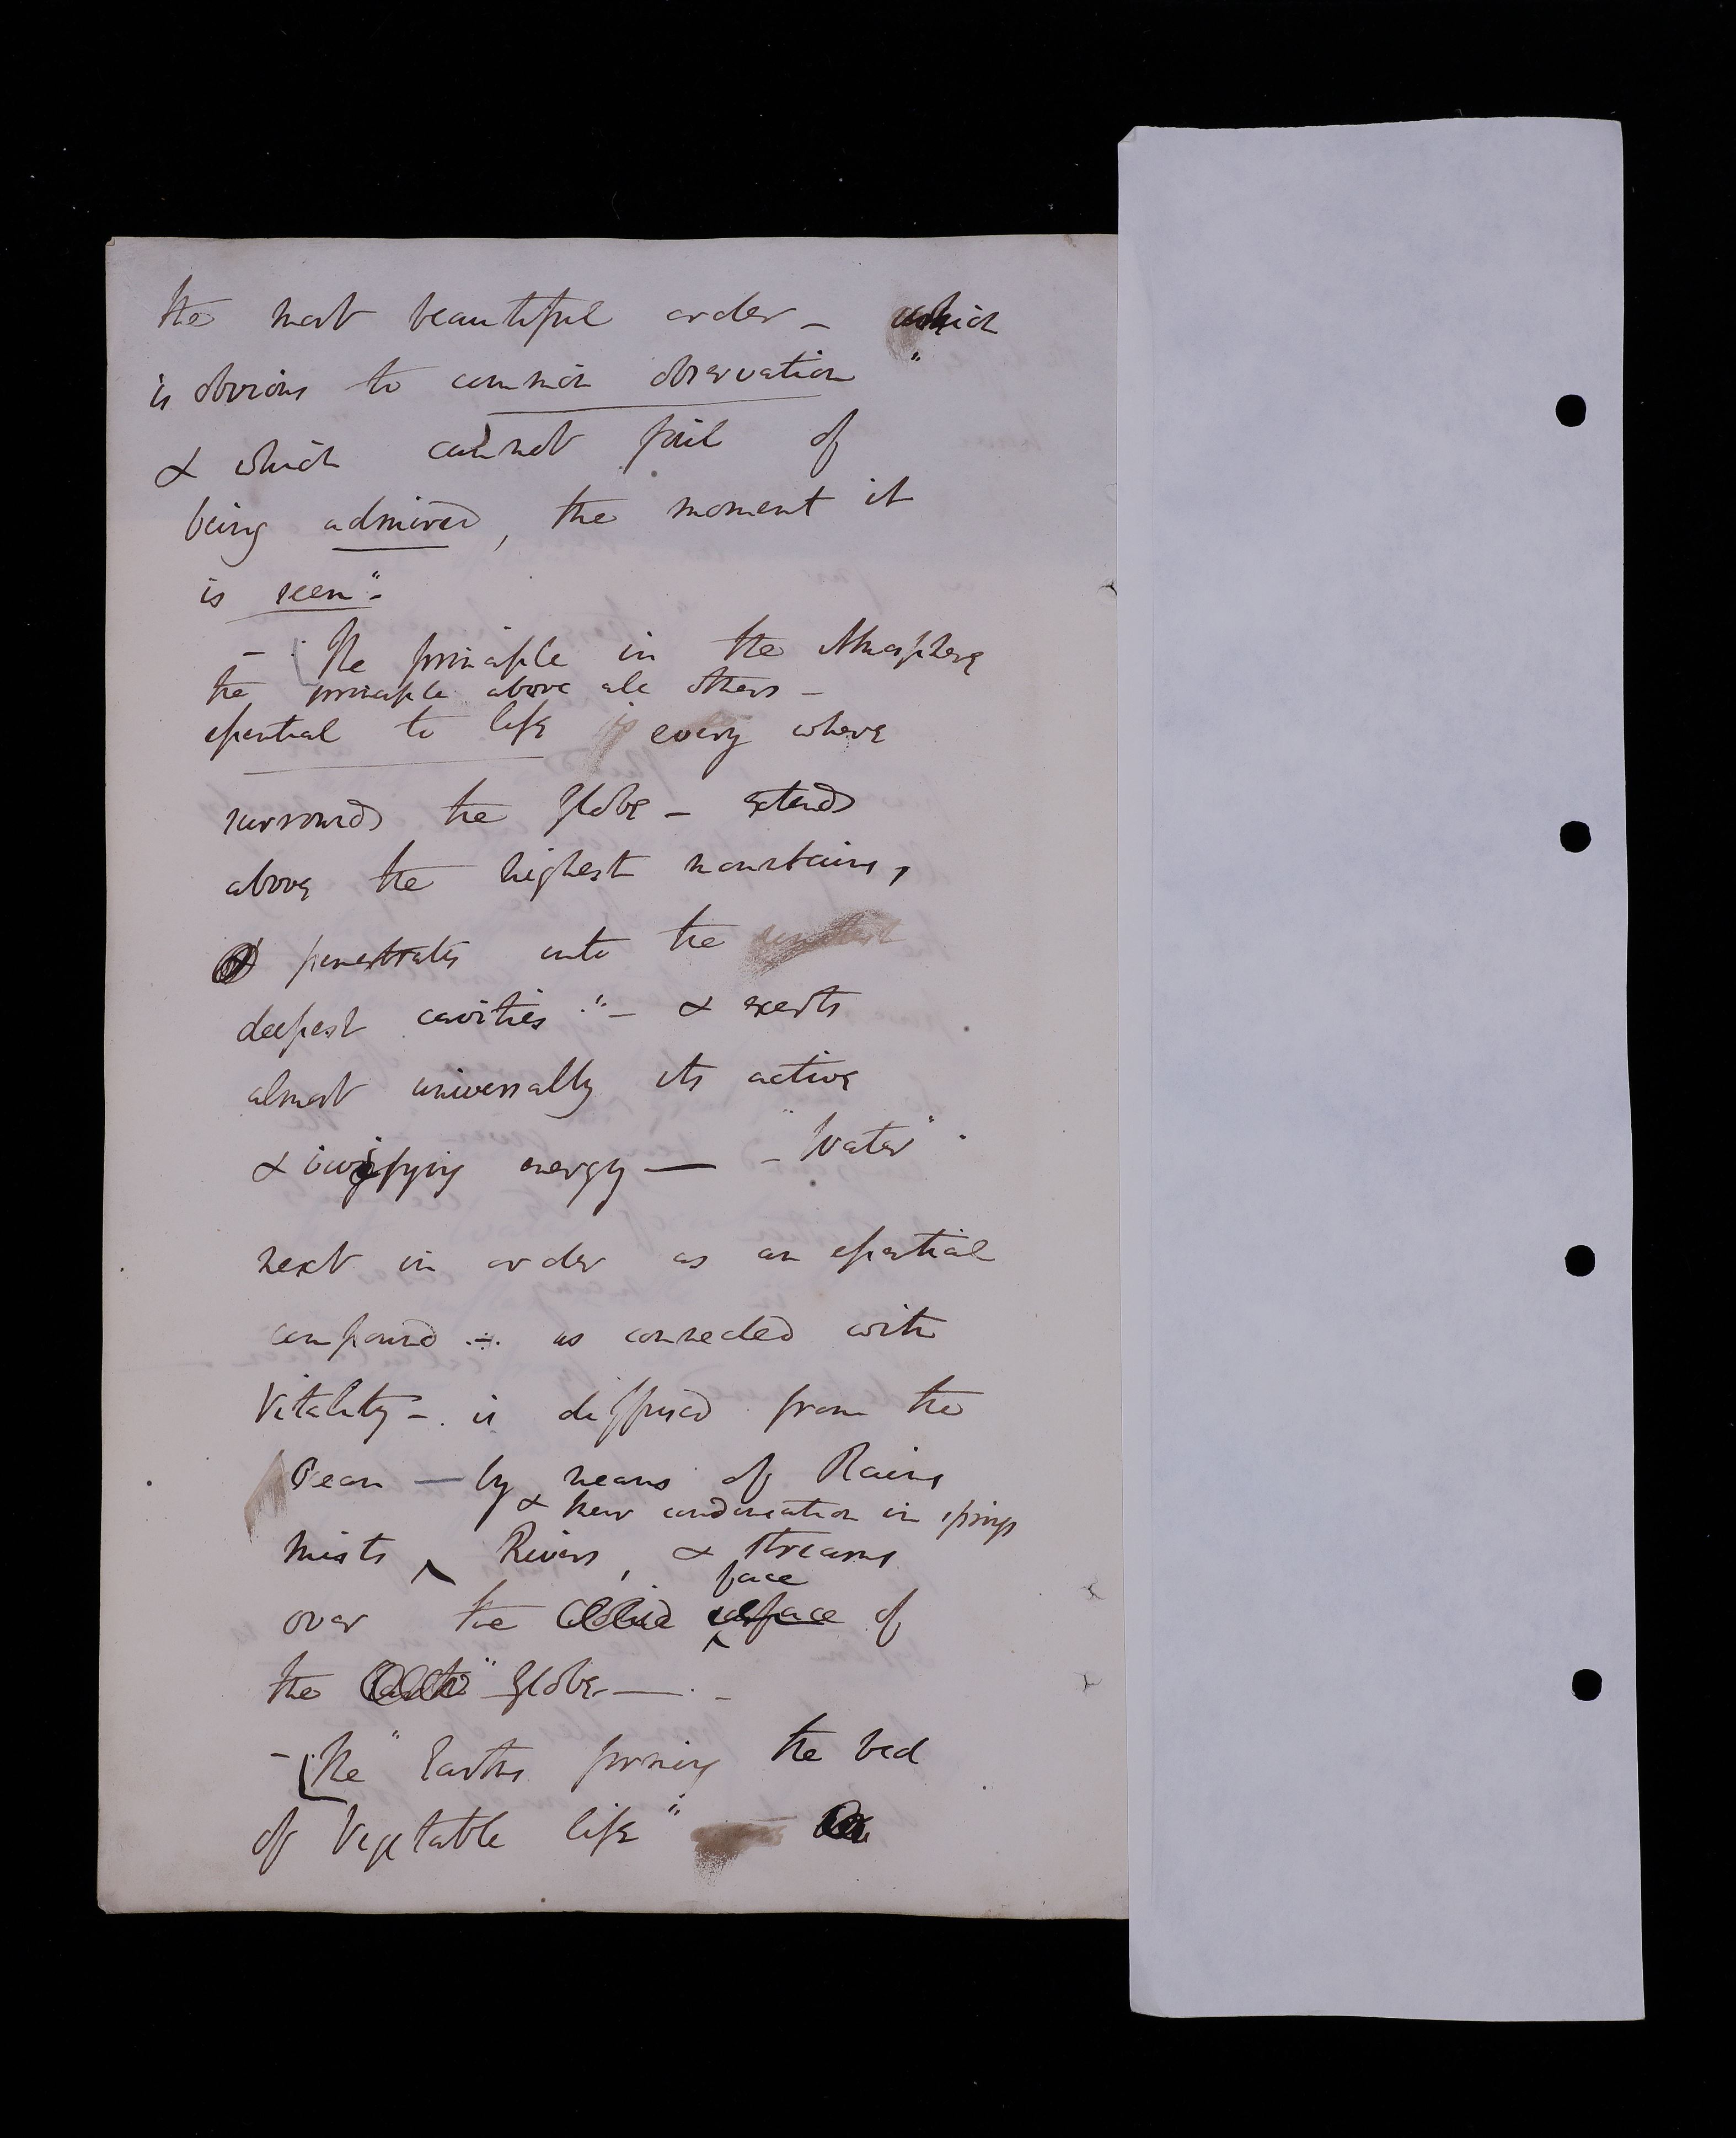 the most beautiful order – which
is obvious to common observation "
& which cannot fail of
being admired, the moment it
is seen". –
– The principle in the Atmosphere
the principle above all others –
essential to life is every where
surrounds the globe – extends
above the highest mountains,
& penetrates into the
deepest cavities." – & exerts
almost universally its active
& invifying energy — – "Water".
next in order as an essential
compound .÷. as connected with
Vitality –. is diffused from the
Ocean — by means of Rains
& their condensation in springs
Mists ‸ Rivers, & streams
face
over the surface of
the " globe — . –
– The "Earths forming the bed
of Vegetable life"